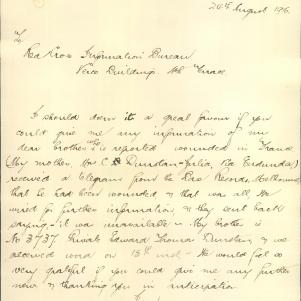 24th August 1916
To
Red Cross Information Bureau
Verco Building, Nth Terrace
I should deem it a great favour if you
could give me any information of my
dear brother who is reported wounded in France
My mother, Mrs C Dunstan
received a telegram from the Base Records, Melbourne
that he had been wounded & that was all. We
wired for further information & they sent back
saying it was unavailable. My brother is
No 3737 Private Edward Thomas Dunstan, & we
received word on 13th inst. We would feel so
very grateful if you could give me any further
news & thanking you in anticipation